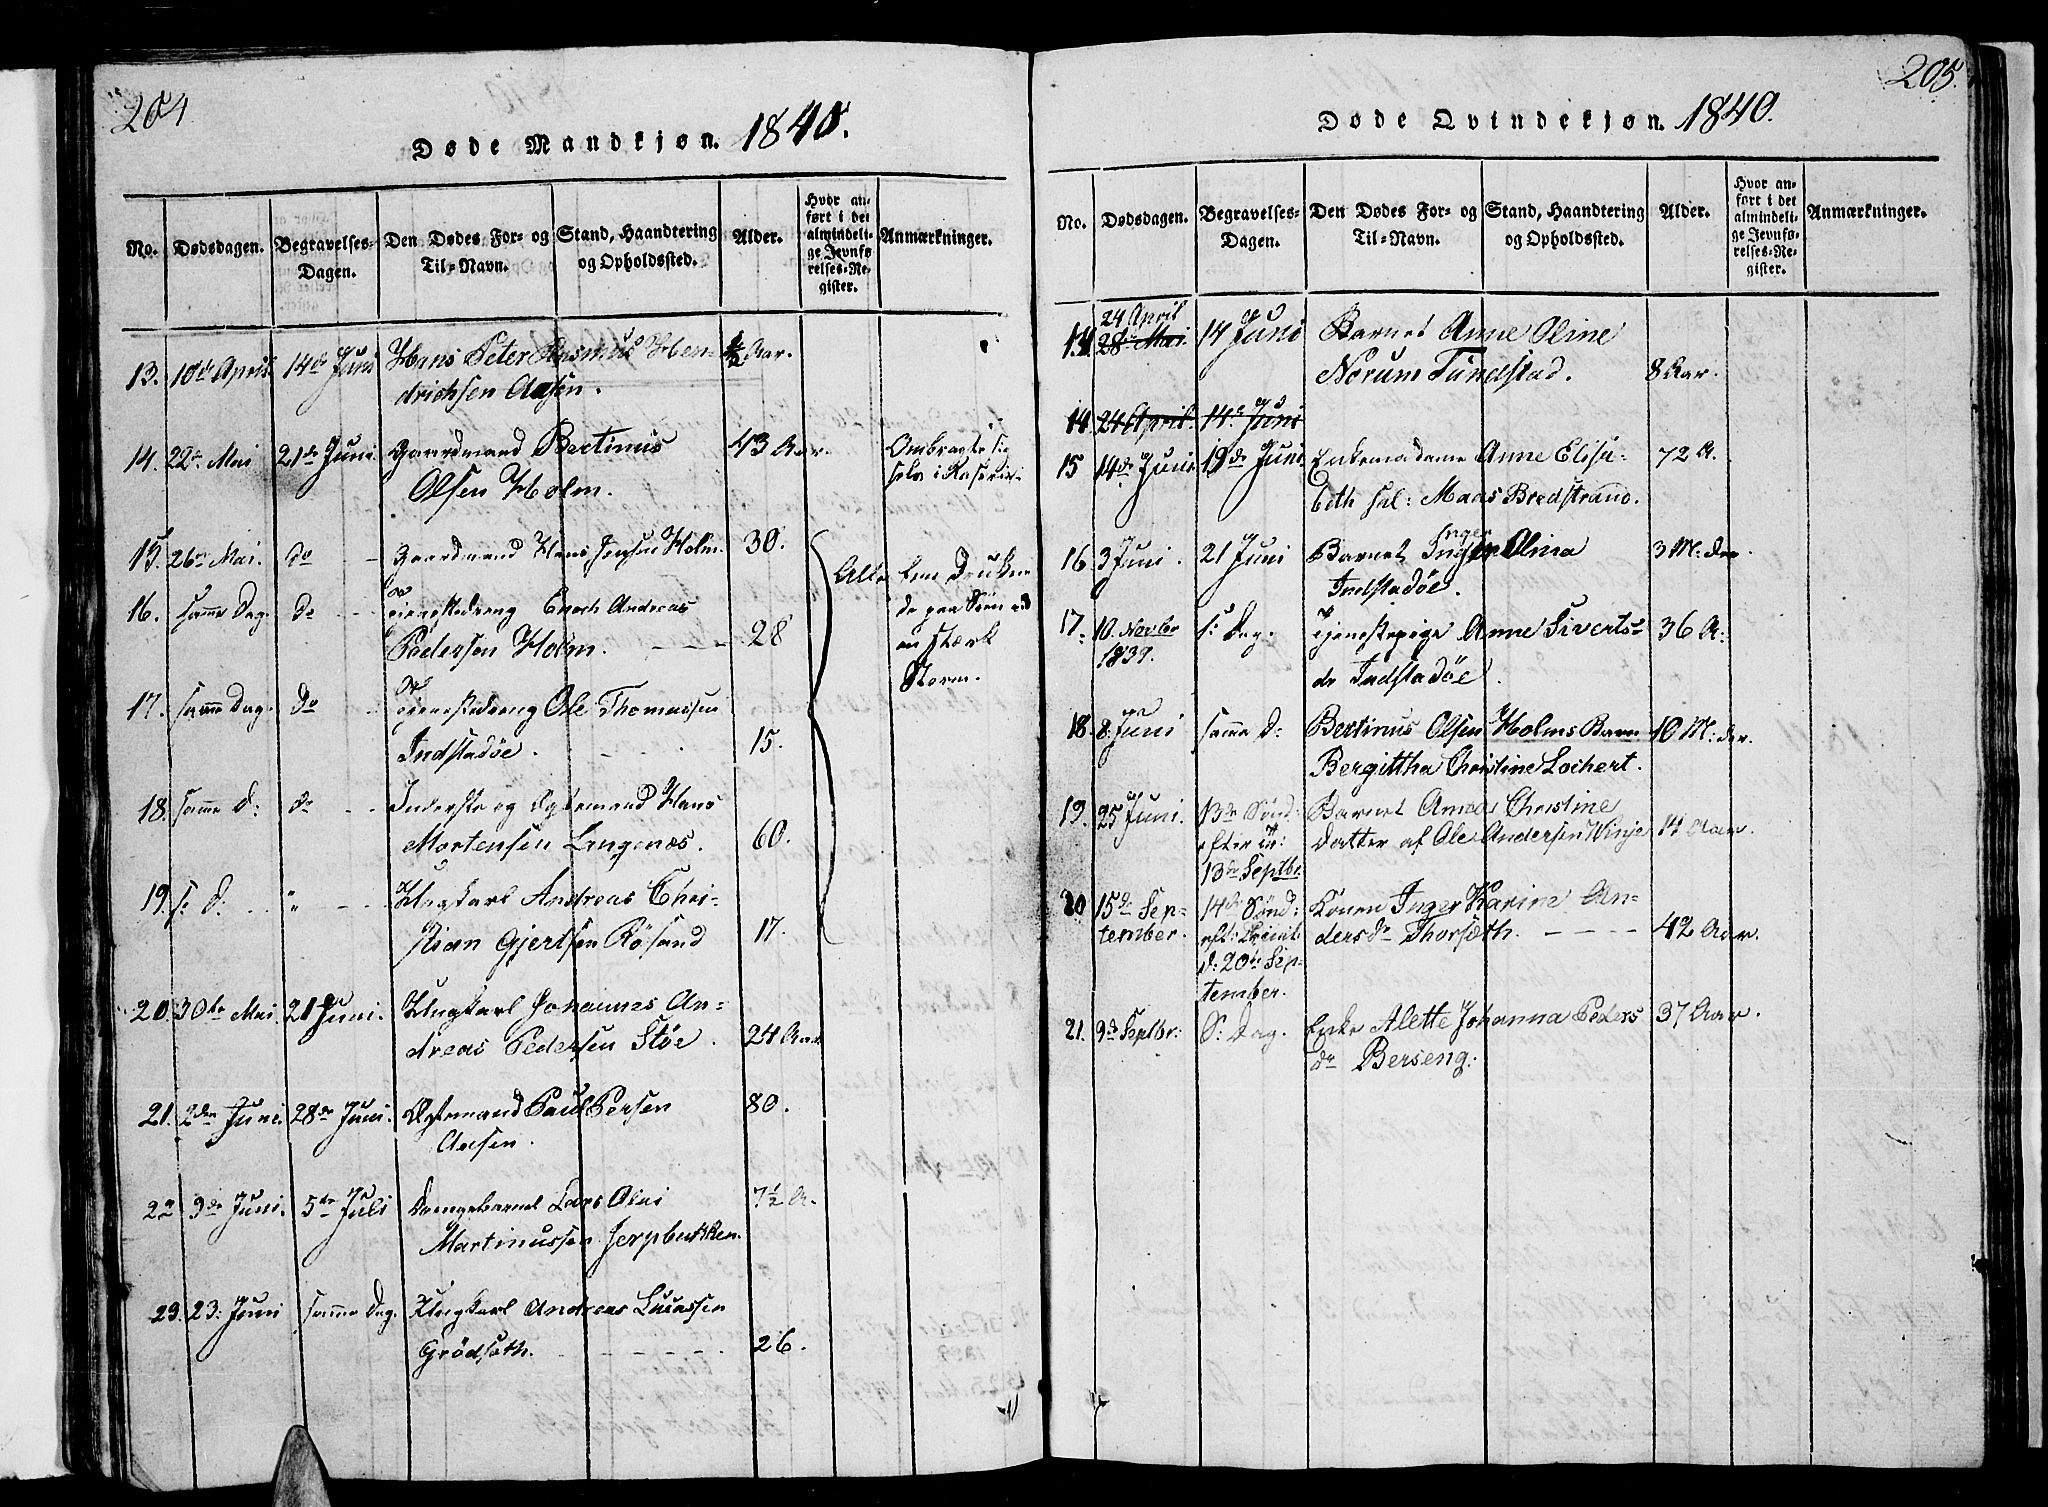 204
Døde Mandkjøn. 1840.
No.
Dødsdagen.
Begravelses-
Dagen.
Den Dødes For- og
Til-Navn.
Stand, Haandtering
og Opholdssted.
Alder.
Hvor an-
ført i det
almindeli-
ge Jevnfø-
relses-Re-
gister.
Anmærkninger.
13. 10de April. 14de Juni Hans Peter Rasmus Hen- Aar.
drichsen Aasen.
14. 22de Mai 21de Juni. Gaardmand Bertinus 43 Aar. Ombragte sig
Olsen Holm. selv i Raserie.
15. 26de Mai. do - Gaardmand Hans Jensen Holm. 30.
16. samme Dag. do - Tjenestedreng Enoch Andreas
Pedersen Holm. 28
Alle fem Drukne-
de paa Søen ved
en stærk
Storm.
17. samme Dag. do Tjenestedreng Ole Thomassen
Indstadøe. 15.
18. samme D: do - - Inderste og Ægtemand Hans
Mortensen Langenæs. 60.
19. s: D: " - - Ungkarl Andreas Chri-
stian Gjertsen Røsand 17.
20. 30te Mai. 21 Juni. Ungkarl Johannes An-
dreas Pedersen Støe. 24 Aar
21. 2den Juni. 28de Juni. Ægtemand Paul Persen 80.
Aasen.
22 9de Juni. 5te Juli Drengebarnet Lars Olai 7½ A.
Martinussen Jerpbakken.
23. 23: Juni samme Dag. Ungkarl Andreas Lucassen
Grødsæth. 26.
205.
Døde Qvindekjøn. 1840.
No.
Dødsdagen.
Begravelses-
Dagen.
Den Dødes For- og
Til-Navn.
Stand, Haandtering
og Opholdssted.
Alder.
Hvor an-
ført i det
almindeli-
ge Jevnfø-
relses-Re-
gister.
Anmærkninger.
24 April
14. 28de Mai 14 Juni Barnet Anne Oline
Norum Tundstad. 8 Aar.
14. 24 April. 14de Juni
15 14de Juni 19de Juni Enkemadame Anne Elisa- 72 A.
beth sal: Maas Bredstrand.
Inger
16. 3 Juni. 21 Juni Barnet Inger Olina 3 M: der.
Indstadøe.
17. 10. Novbr s: Dag. Tjenestepige Anne Siverts- 36 A:
1839. dr Indstadøe.
18. 8: Juni samme D: Bertinus Olsen Holms Barn 10 M: der.
Bergittha Christine Lochert.
19. 25 Juni. 13de Sønd: Barnet Anne Christine
efter Tr: Datter af Ole Andersen Winje 14 Aar.
13de Septbr.
20 15de Sep- 14de Sønd: Konen Inger Karine An-
tember. eft: Trinit: dersdr Thorsæth. - - - - 42 Aar.
d: 20de Sep-
tember.
21. 9de Septbr: S: Dag. Enke Alette Johanna Peders 37 Aar.
dr Berseng.